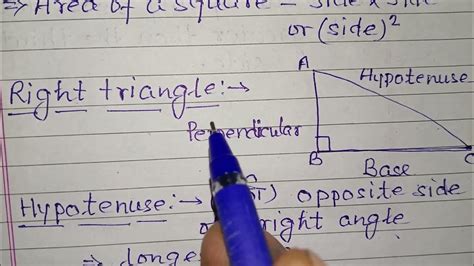 ⇒ Area of a square = side x side
or (side)²
Right triangle:→
A
Hypotenuse
Perpendicular
B
Base
C
Hypotenuse:→ opposite side
right angle
⇒ longes